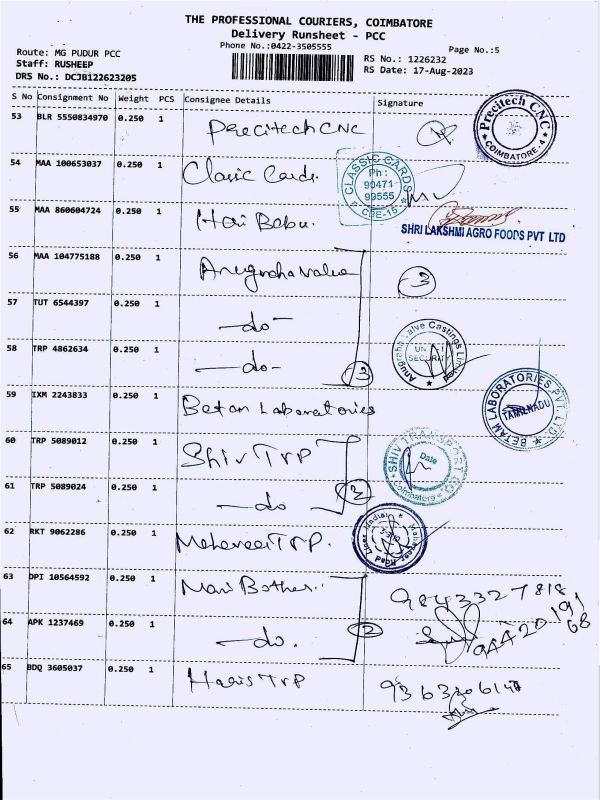 THE PROFESSIONAL COURIERS, COIMBATORE
Delivery Runsheet - PCC
Phone No.:0422-3505555
Page No.:5
Route: MG PUDUR PCC
Staff: RUSHEEP
DRS No.: DCJB122623205
RS No.: 1226232
RS Date: 17-Aug-2023
S No Consignment No Weight PCS Consignee Details Signature
53 BLR 5550834970 0.250 1 Precitech CNC
Precitech CNC COIMBATORE-4
54 MAA 100653037 0.250 1 Classic Cards.
CLASSIC CARDS Ph: 90471 99555 CBE-15
55 MAA 860604724 0.250 1 Hari Babu.
SHRI LAKSHMI AGRO FOODS PVT LTD
56 MAA 104775188 0.250 1 Anugraha Valve -3
57 TUT 6544397 0.250 1 -do-
58 TRP 4862634 0.250 1 -do- 3
Anugraha Valve Castings SECURITY
59 IXM 2243833 0.250 1 Betam Laboratories
BETAM LABORATORIES PVT LTD TAMILNADU
60 TRP 5089012 0.250 1 Shiv TRP
SHIV TRANSPORT Date Coimbatore
61 TRP 5089024 0.250 1 -do 2
62 RKT 9062286 1 TRP.
63 DPI 10564592 0.250 1 Mani 9843327818
64 APK 1237469 0.250 1 -do. 2
65 BDQ 3605037 0.250 1 TRP